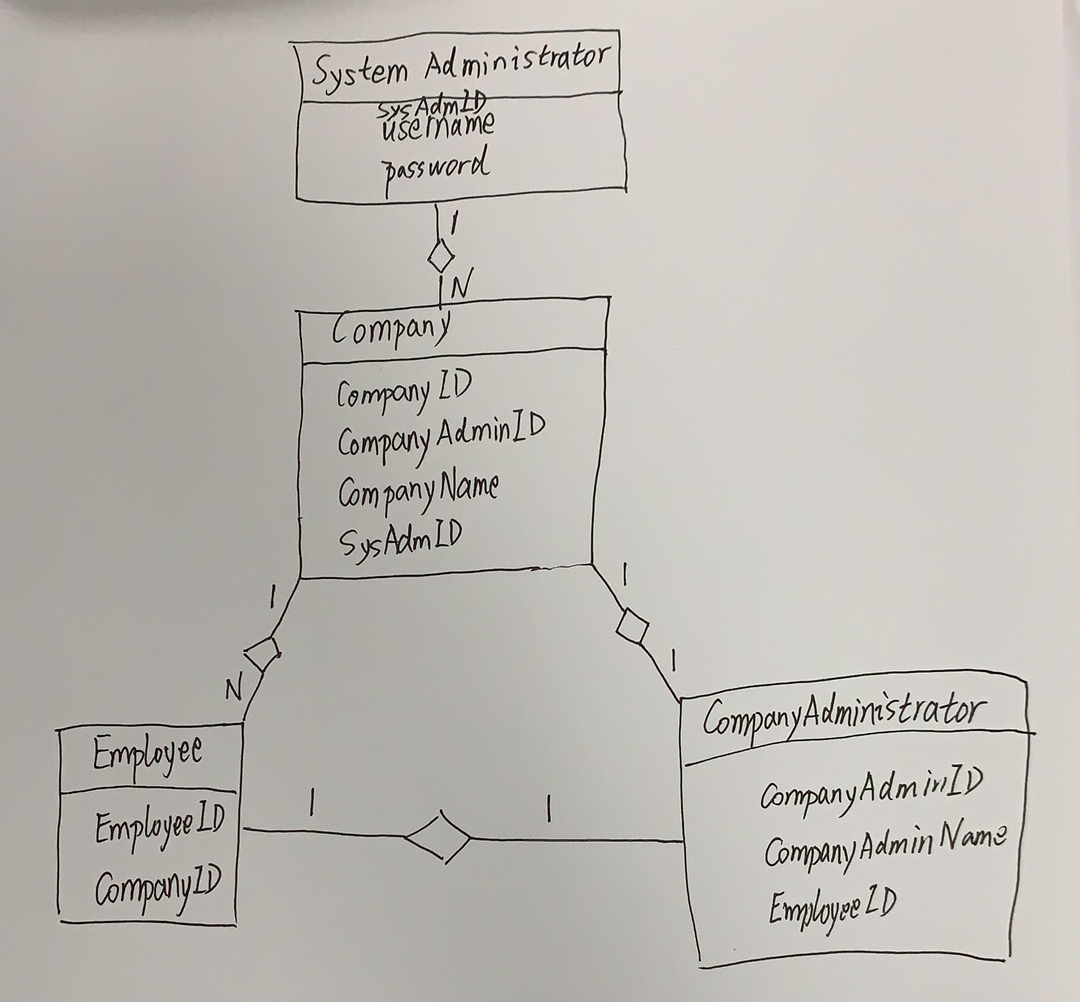 System Administrator
SysAdmID
username
password
1
N
Company
CompanyID
CompanyAdminID
CompanyName
SysAdmID
1
1
N
1
Employee
EmployeeID
CompanyID
1
1
CompanyAdministrator
CompanyAdminID
CompanyAdminName
EmployeeID